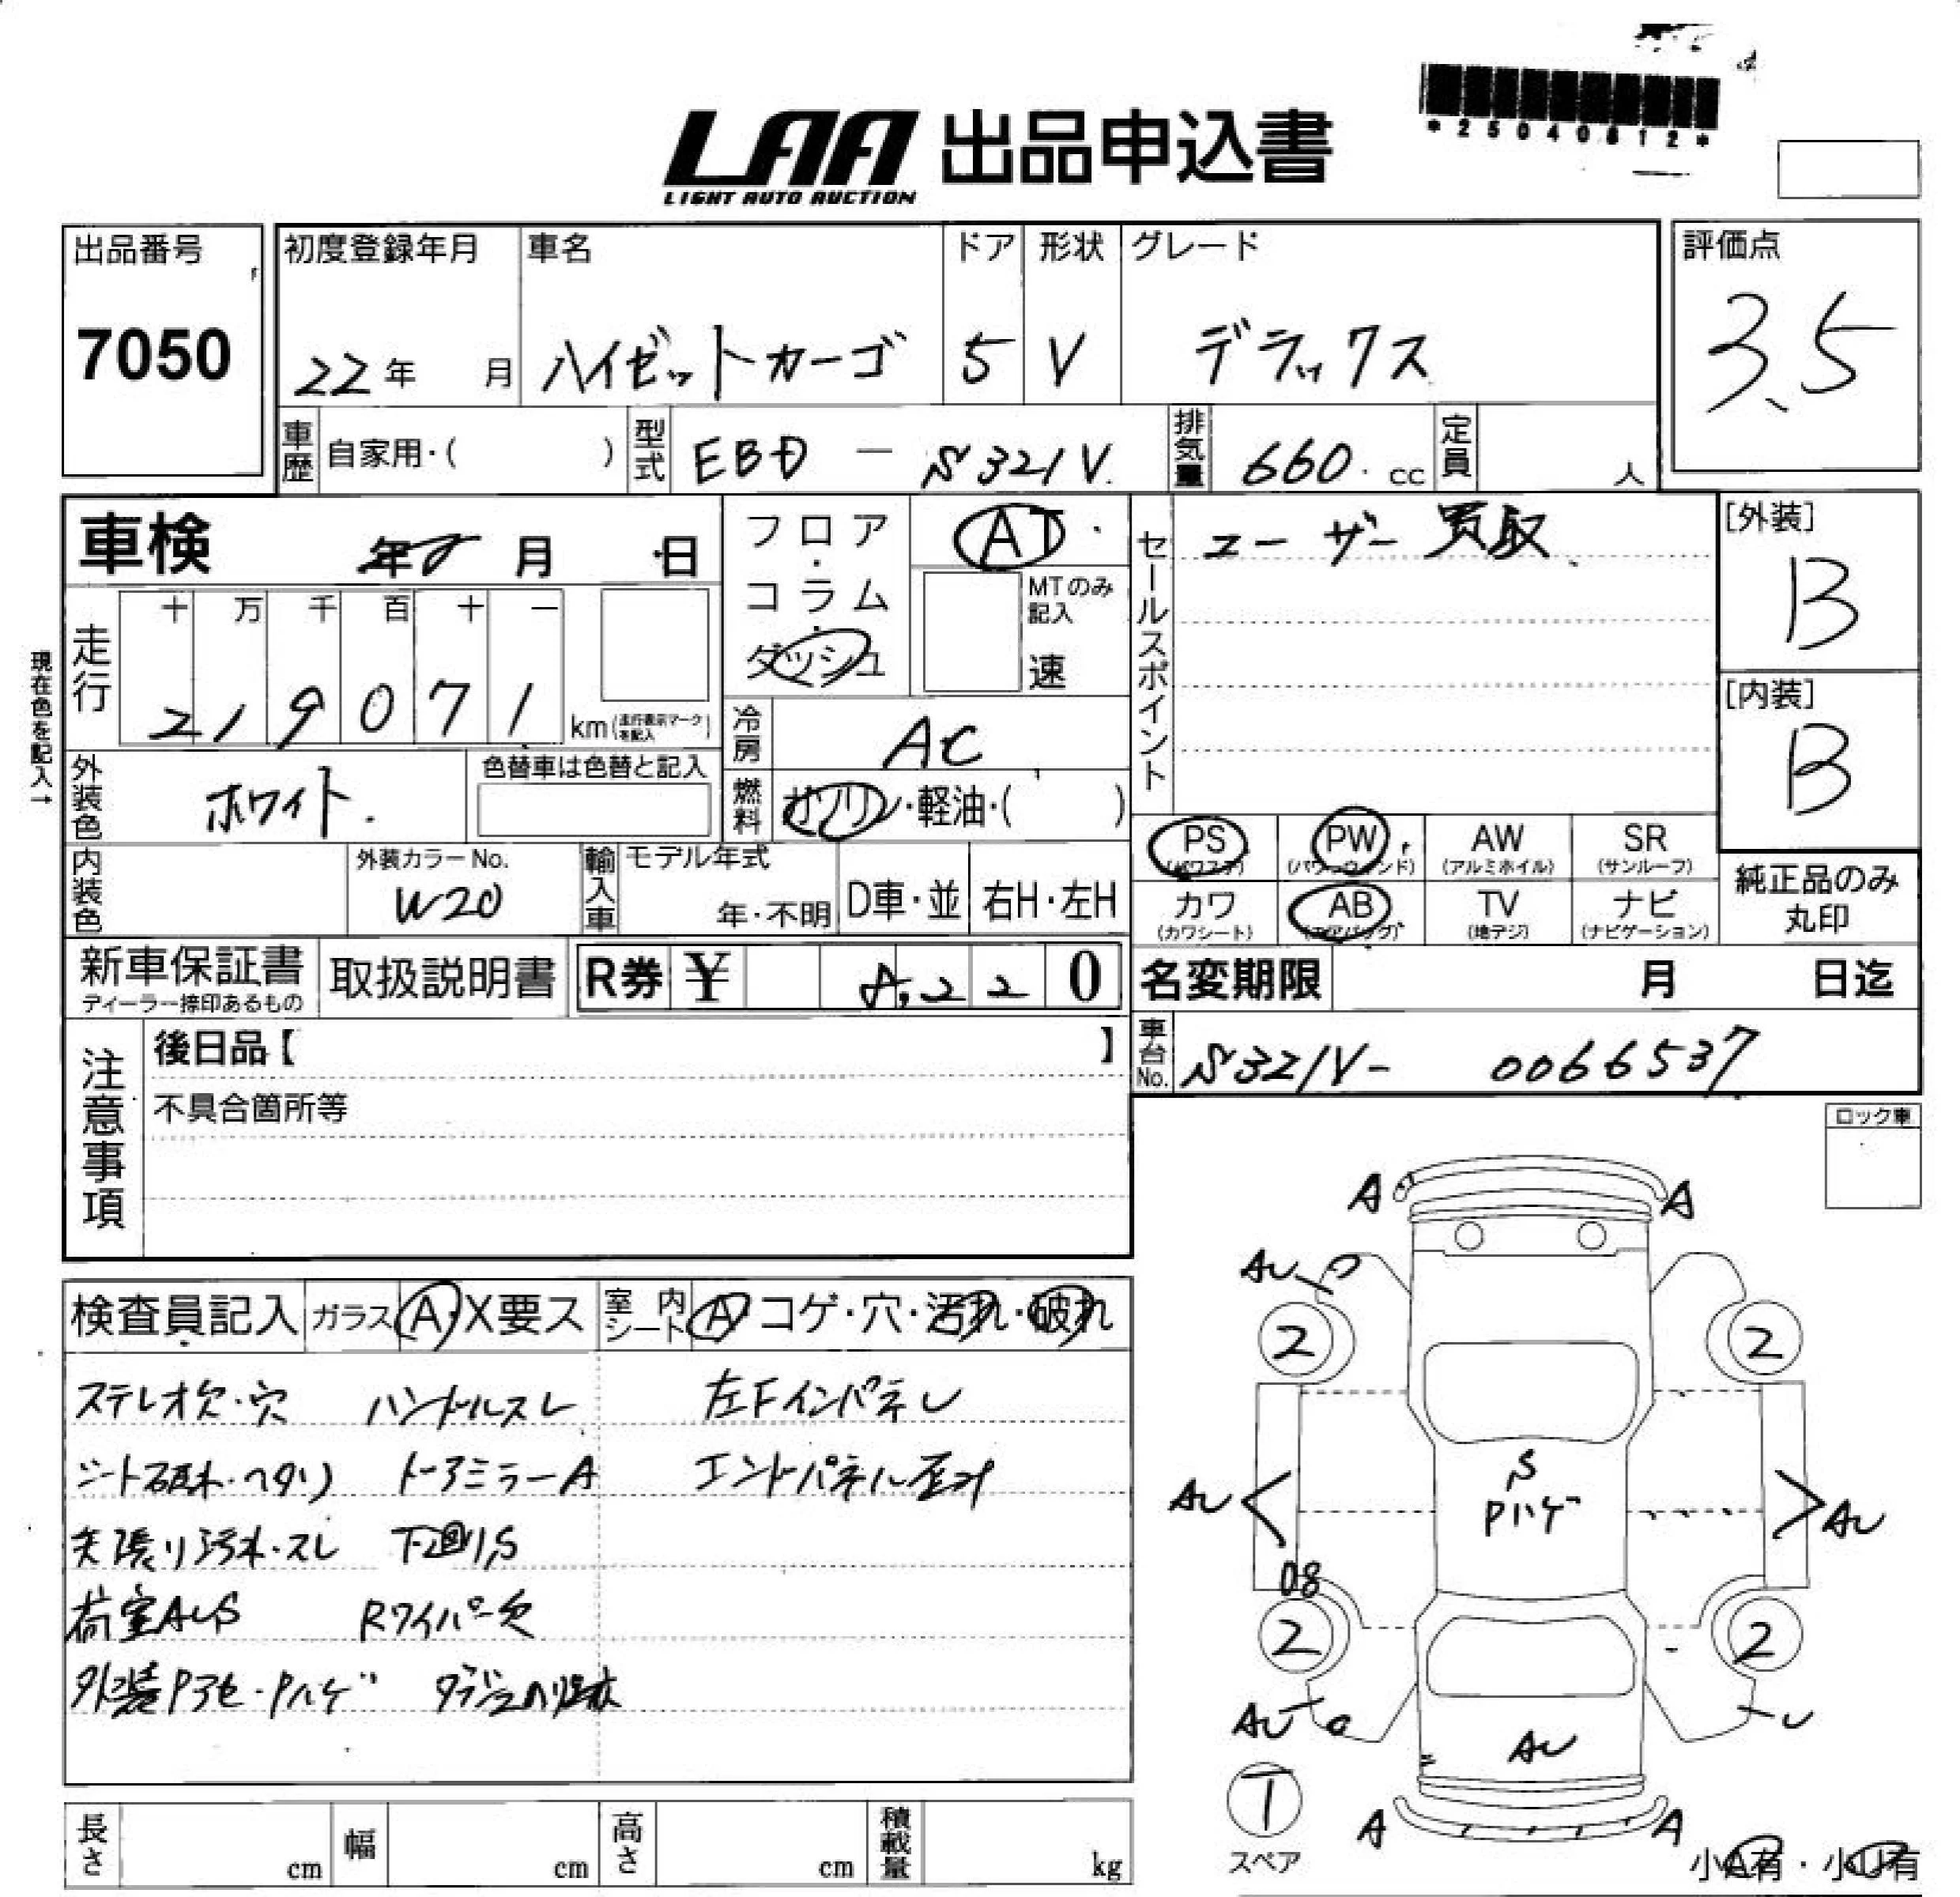 *25040812*
LAA 出品申込書
LIGHT AUTO AUCTION
出品番号
7050
初度登録年月
22年 月
車名
ハイゼットカーゴ
ドア
5
形状
V
グレード
デラックス
評価点
3.5
車歴
自家用・( )
型式
EBD - S321V
排気量
660 cc
定員
人
車検
年 月 日
走行
十 万 千 百 十 一
2 1 9 0 7 1
km (走行表示マークを記入)
現在色を記入→
フロア・コラム・ダッシュ
AT
MTのみ記入
速
冷房
AC
燃料
ガソリン・軽油・( )
外装色
ホワイト
色替車は色替と記入
内装色
外装カラーNo.
W20
輸入車
モデル年式
年・不明
D車・並
右H・左H
セールスポイント
ユーザー買取
[外装]
B
[内装]
B
PS (パワステ)
PW (パワーウィンド)
AW (アルミホイル)
SR (サンルーフ)
カワ (カワシート)
AB (エアバッグ)
TV (地デジ)
ナビ (ナビゲーション)
純正品のみ丸印
新車保証書
ディーラー捺印あるもの
取扱説明書
R券 ¥ 8,220
名変期限 月 日迄
車台No.
S321V- 0066537
注意事項
後日品【 】
不具合箇所等
ロック車
検査員記入
ガラス A・X要ス
室内シート A・コゲ・穴・汚れ・破れ
ステレオ欠・穴 ハンドルスレ 左Fインパネ レ
シート破れ・ヘタリ ドアミラーA エンドパネル歪み
天張り汚れ・スレ 下廻りS
荷室AUS Rワイパー欠
外装Pアセ・Pハゲ
A A
AU
2 2
S
Pハゲ
AU AU
08
2 2
AU U
AU
T
スペア
A A
小A有・小U有
長さ cm
幅 cm
高さ cm
積載量 kg